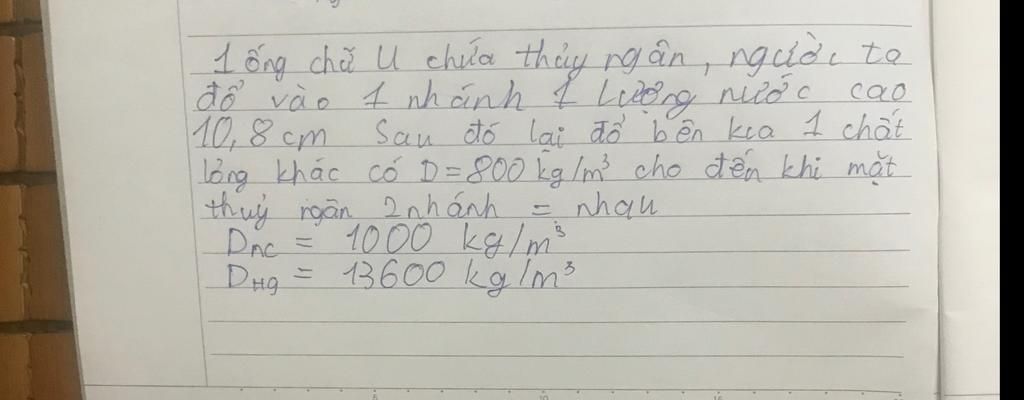 1 ống chữ U chứa thủy ngân, người ta
đổ vào 1 nhánh 1 lượng nước cao
10,8 cm Sau đó lại đổ bên kia 1 chất
lỏng khác có D = 800 kg/m³ cho đến khi mặt
thuỷ ngân 2 nhánh = nhau
Dnc = 1000 kg/m³
DHg = 13600 kg/m³
5
10
15